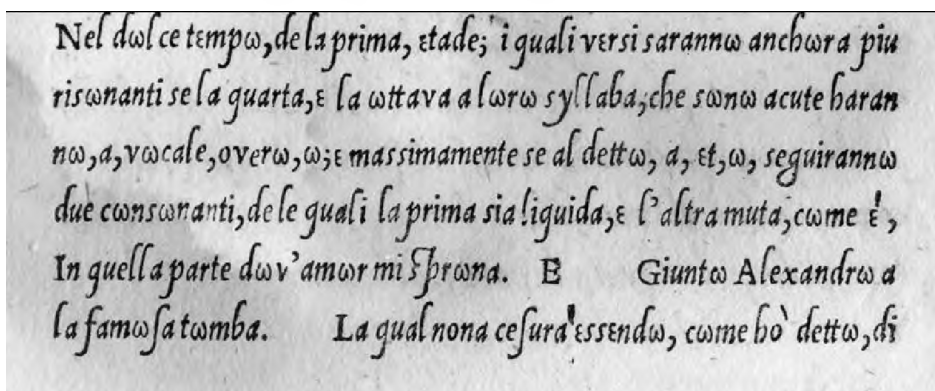 Nel dωlce tεmpω, de la prima, εtade; i quali vεrsi sarannω anchωra piu
risωnanti se la quarta, ε la ωttava a lωrω syllaba, che sωnω acute haran
nω, a, vωcale, overω, ω; ε massimamente se al dettω, a, εt, ω, seguirannω
due cωnsωnanti, de le quali la prima sia liquida, ε l'altra muta, cωme ε',
In quella parte dωv'amωr mi ſprωna. E Giuntω Alexandrω a
la famωſa tωmba. La qual nona ceſura' εssεndω, cωme hò dettω, di